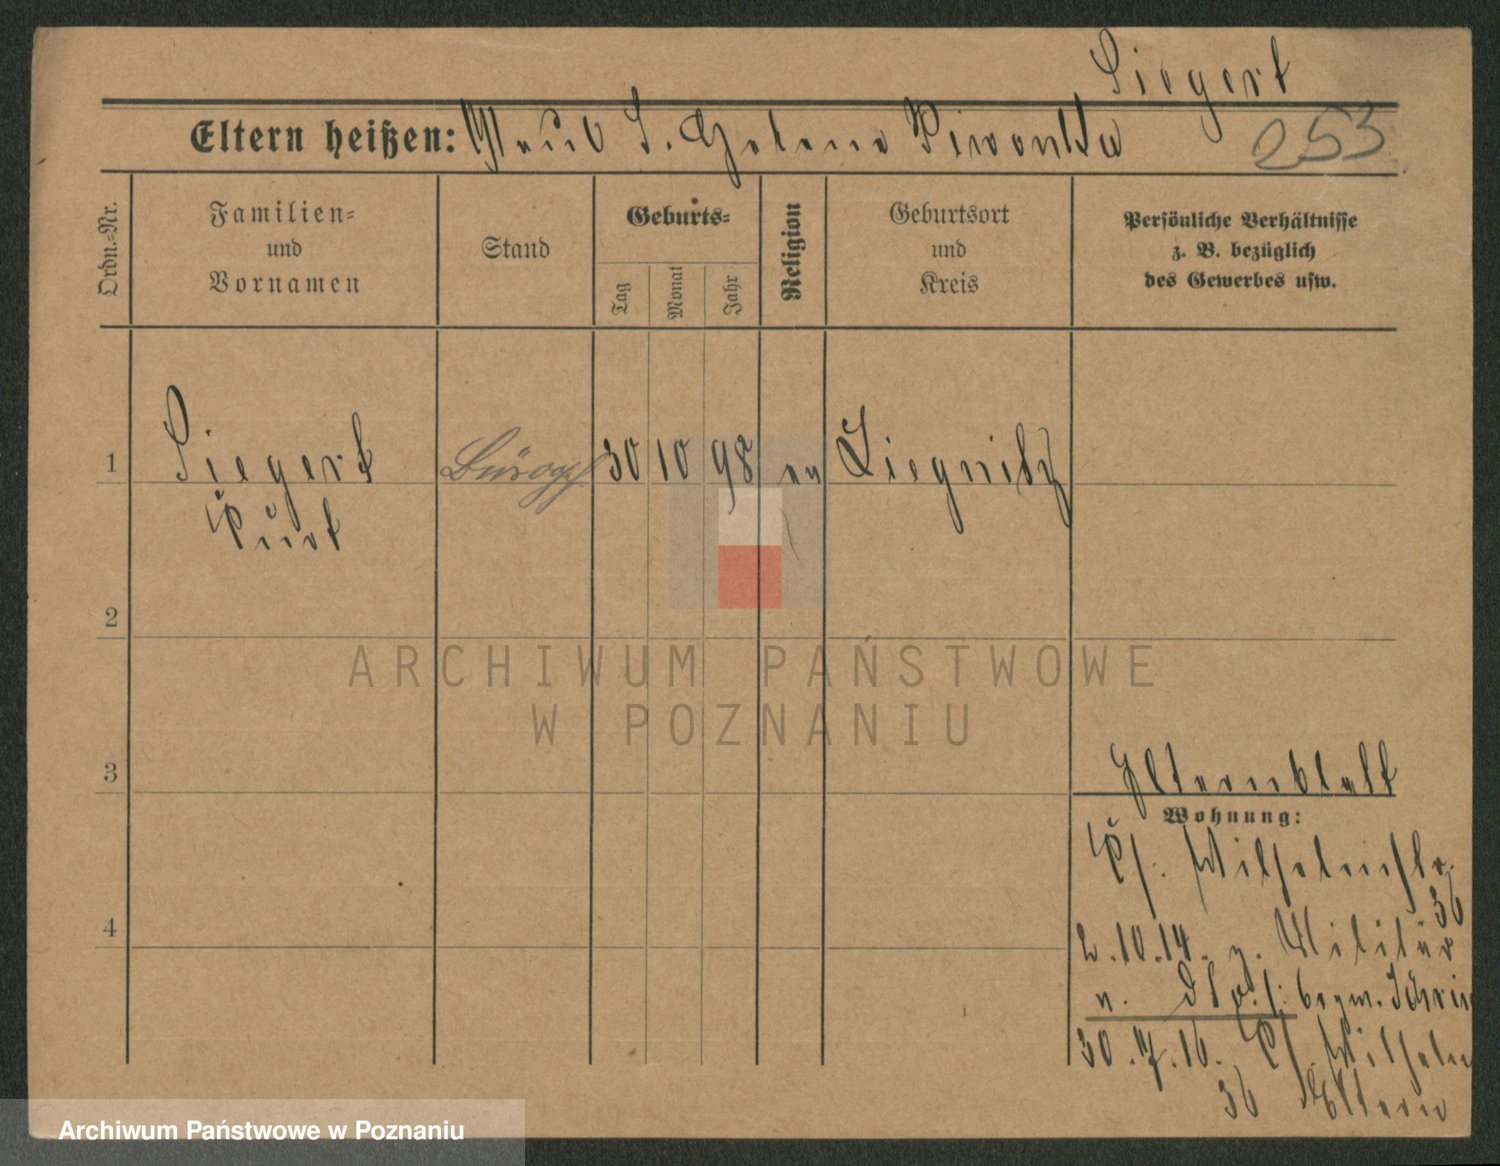 Siegert
Eltern heißen: Helene Piwonka
253
Ordn.-Nr.
Familien-
und
Vornamen
Stand
Geburts-
Tag
Monat
Jahr
Religion
Geburtsort
und
Kreis
Persönliche Verhältnisse
z. B. bezüglich
des Gewerbes usw.
1
Siegert
Kurt
30 10 98 ev Liegnitz
2
3
4
Elternblatt
Wohnung:
Wilhelmstr.
36
2.10.14. z. Militär
n.
30.7.16. Wilhelm
36 Eltern
ARCHIWUM PAŃSTWOWE
W POZNANIU
Archiwum Państwowe w Poznaniu